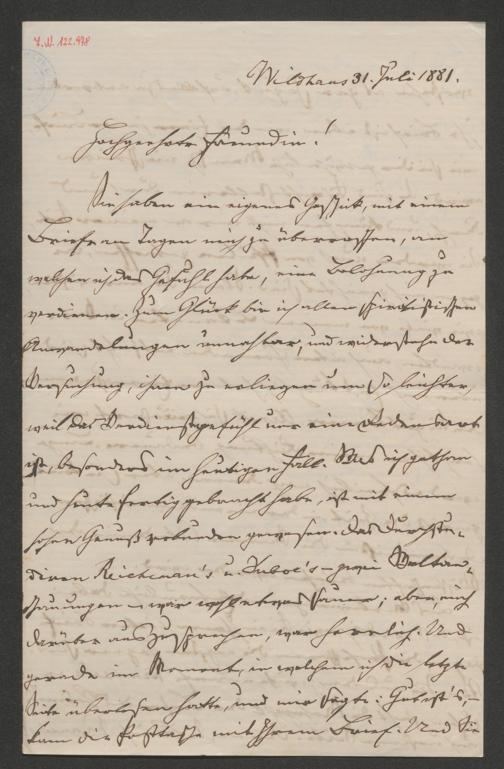 I.N. 122.478
Wildhaus 31. Juli 1881.
Hochgeehrte Freundin!
Sie haben ein eigenes Geschick, mit einem
Briefe an Tagen mich zu überraschen, an
welchen ich das Gefühl habe, eine Belohnung zu
verdienen. Zum Glück bin ich allen spiritistischen
Anwandelungen unnahbar, und widerstehe der
Versuchung, ihnen zu erliegen um so leichter,
weil das Verdienstgefühl nur eine Redensart
ist, besonders im heutigen Fall. Was ich gethan
und heute fertig gebracht habe, ist mit einem
hohen Genuß verbunden gewesen. Das Durchstu-
diren u. Duboc's – zwei Weltan-
schauungen – war wohl etwas sauer; aber, mich
darüber auszusprechen, war herrlich. Und
gerade im Moment, in welchem ich die letzte
Seite überlesen hatte, und mir sagte: Gut ist's, –
kam die Posttasche mit Ihrem Brief. Und Sie